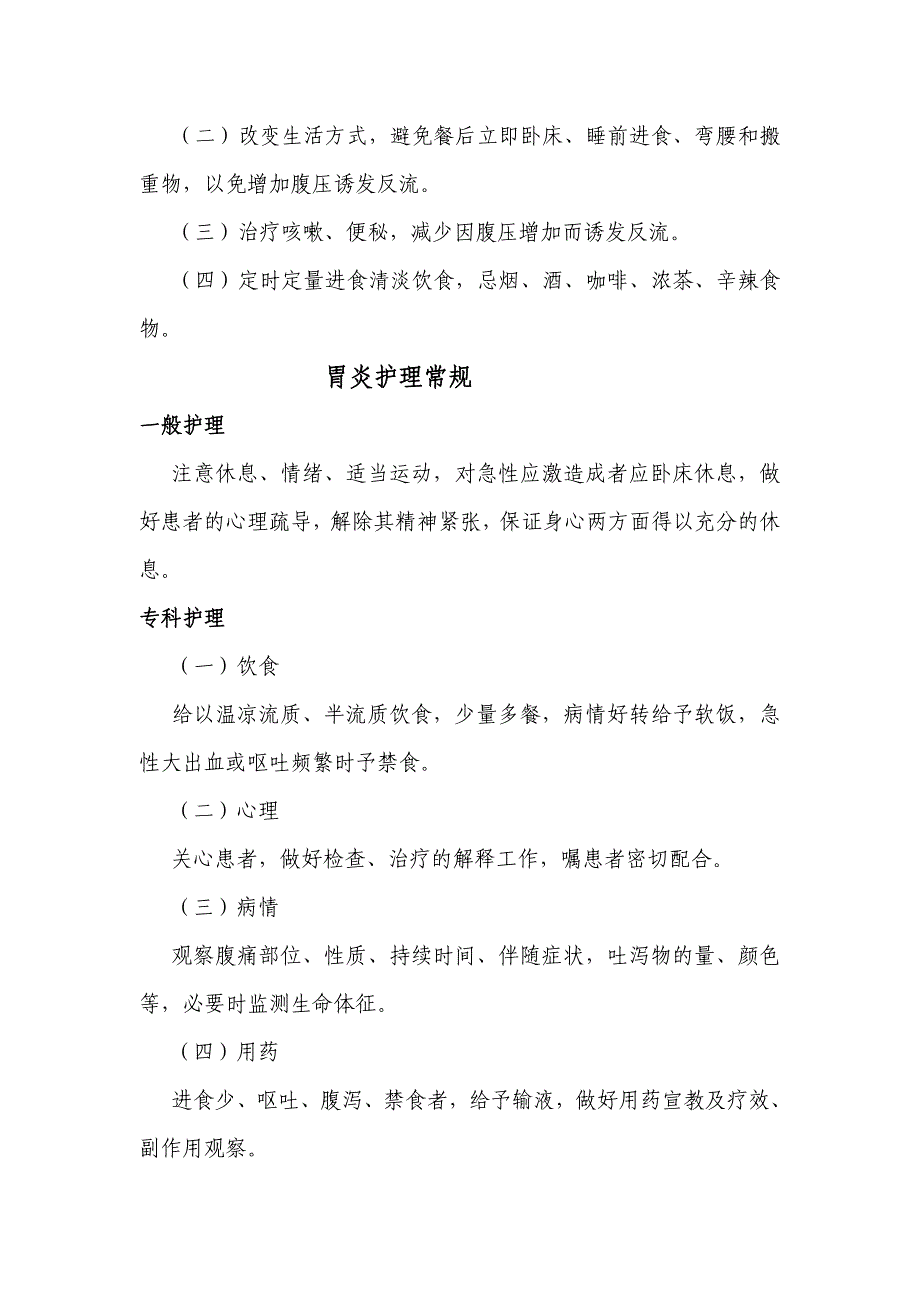 （二）改变生活方式，避免餐后立即卧床、睡前进食、弯腰和搬
重物，以免增加腹压诱发反流。
（三）治疗咳嗽、便秘，减少因腹压增加而诱发反流。
（四）定时定量进食清淡饮食，忌烟、酒、咖啡、浓茶、辛辣食
物。
胃炎护理常规
一般护理
注意休息、情绪、适当运动，对急性应激造成者应卧床休息，做
好患者的心理疏导，解除其精神紧张，保证身心两方面得以充分的休
息。
专科护理
（一）饮食
给以温凉流质、半流质饮食，少量多餐，病情好转给予软饭，急
性大出血或呕吐频繁时予禁食。
（二）心理
关心患者，做好检查、治疗的解释工作，嘱患者密切配合。
（三）病情
观察腹痛部位、性质、持续时间、伴随症状，吐泻物的量、颜色
等，必要时监测生命体征。
（四）用药
进食少、呕吐、腹泻、禁食者，给予输液，做好用药宣教及疗效、
副作用观察。